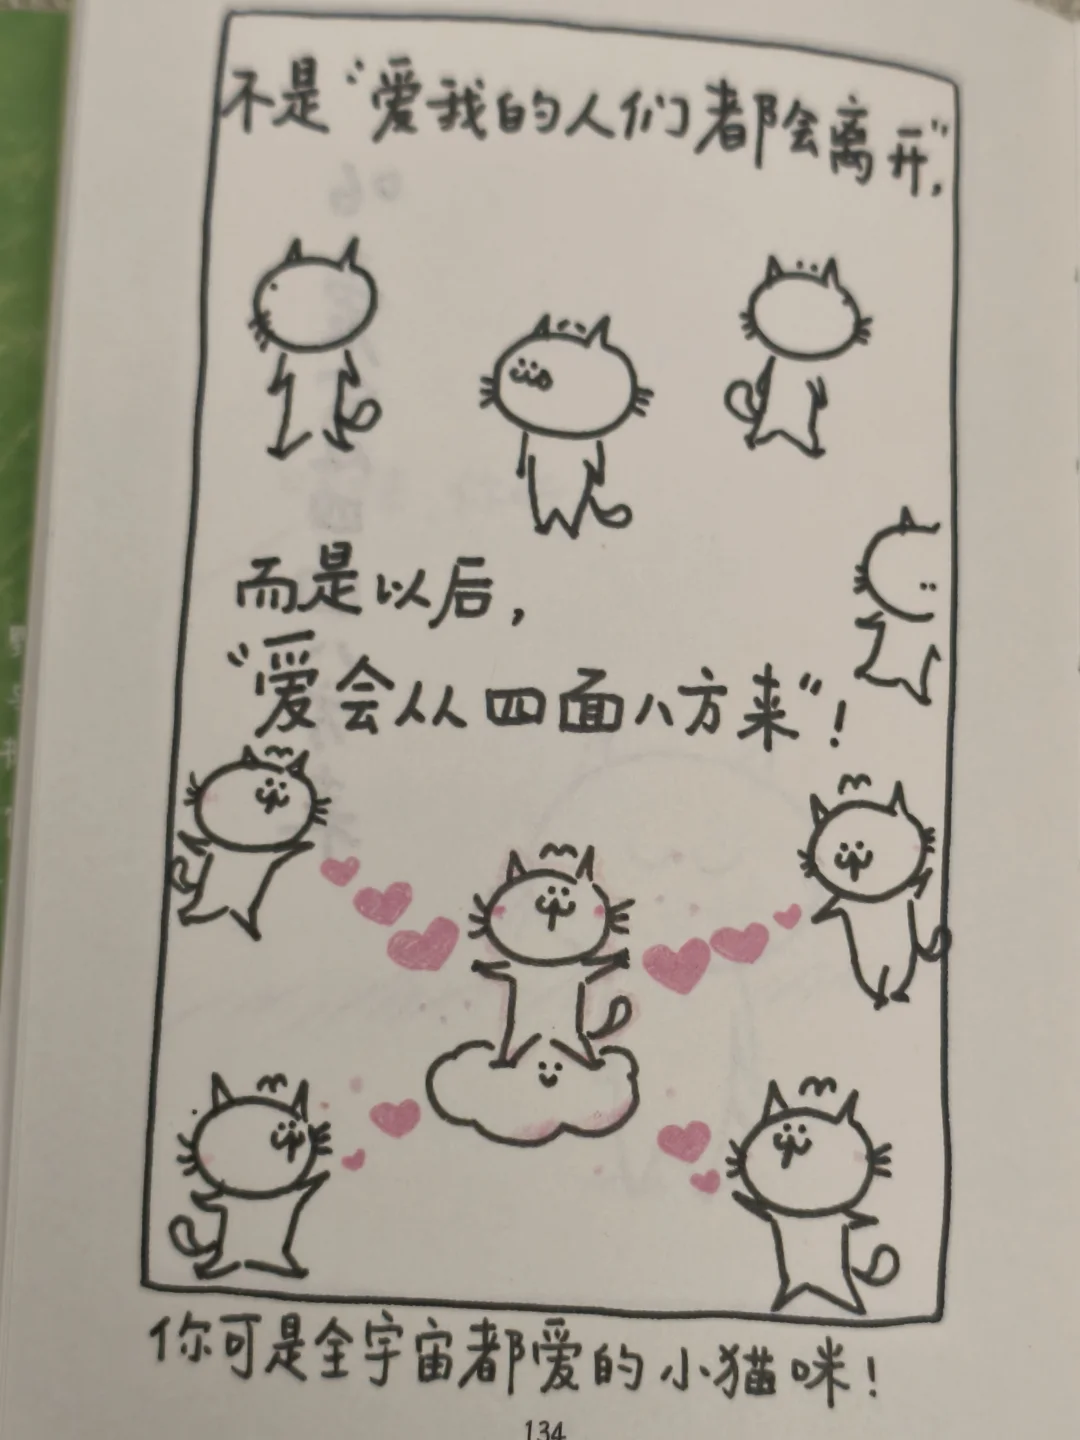 不是“爱我的人们都会离开”，
而是以后，
“爱会从四面八方来”！
你可是全宇宙都爱的小猫咪！
134